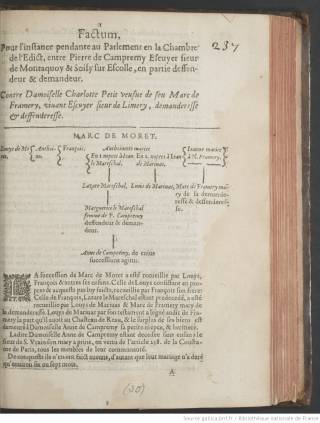 Factum,
237
Pour l'instance pendante au Parlement en la Chambre
de l'Edict, entre Pierre de Campremy Escuyer sieur
de Montaquoy & Soisy sur Escolle, en partie deffen-
deur & demandeur.
Contre Damoiselle Charlotte Petit veufue de feu Marc de
Framery, viuant Escuyer sieur de Limery, demanderesse
& deffenderesse.
MARC DE MORET.
Louys de Mo- Anthoi- François Anthoinette mariée Ieanne mariée
En 1. nopces à Ican En 2. nopces à Iean à N. Framery.
le Mareschal. de Marinas.
Lazare Mareschal. Louis de Marinas. Marc de Framery mary
de la demande-
Marguerite le Mareschal resse & deffenderes-
femme de P. Campremy se.
deffendeur & deman-
deur.
Anne de Campremy, de cuius
successione agitur.
LA succession de Marc de Moret a esté recueillie par Louys,
François & autres ses enfans. Celle de Louys consistant en pro-
pres & acquests par luy faicts, recueillie par François son frere:
Celle de François, Lazare le Mareschal estant predecedé, a esté
recueillie par Louys de Marinas & Marc de Framery mary de
la demanderesse. Louys de Marinas par son testament a legué audit de Fra-
mery la part qu'il auoit au Chasteau de Reau, & le surplus de ses biens est
demeuré à Damoiselle Anne de Campremy sa petite niepce, & heritiere.
Ladite Damoiselle Anne de Campremy estant decedée sans enfans le
sieur de S. son mary a prins, en vertu de l'article 238. de la Coustu-
me de Paris, tous les meubles de leur communauté.
De conquests ils n'en ont faict aucuns, d'autant que leur mariage n'a duré
qu'enuiron six ou sept mois.
A
(20)
Source gallica.bnf.fr / Bibliothèque nationale de France